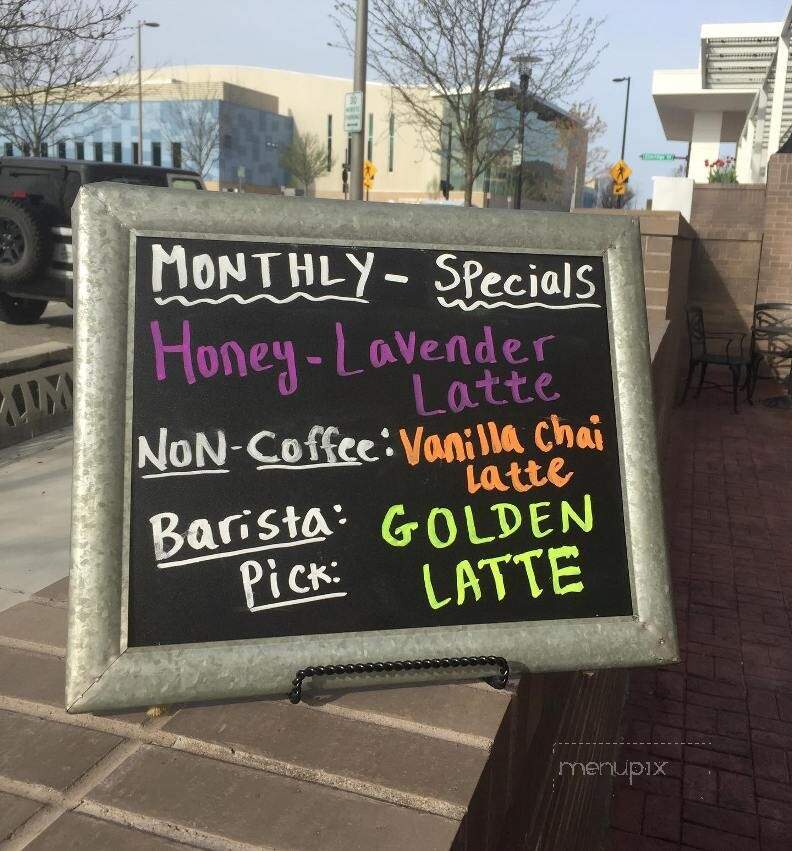 MONTHLY - SPecials
Honey - Lavender
Latte
NON-Coffee: Vanilla Chai
Latte
Barista: GOLDEN
Pick: LATTE
menupix